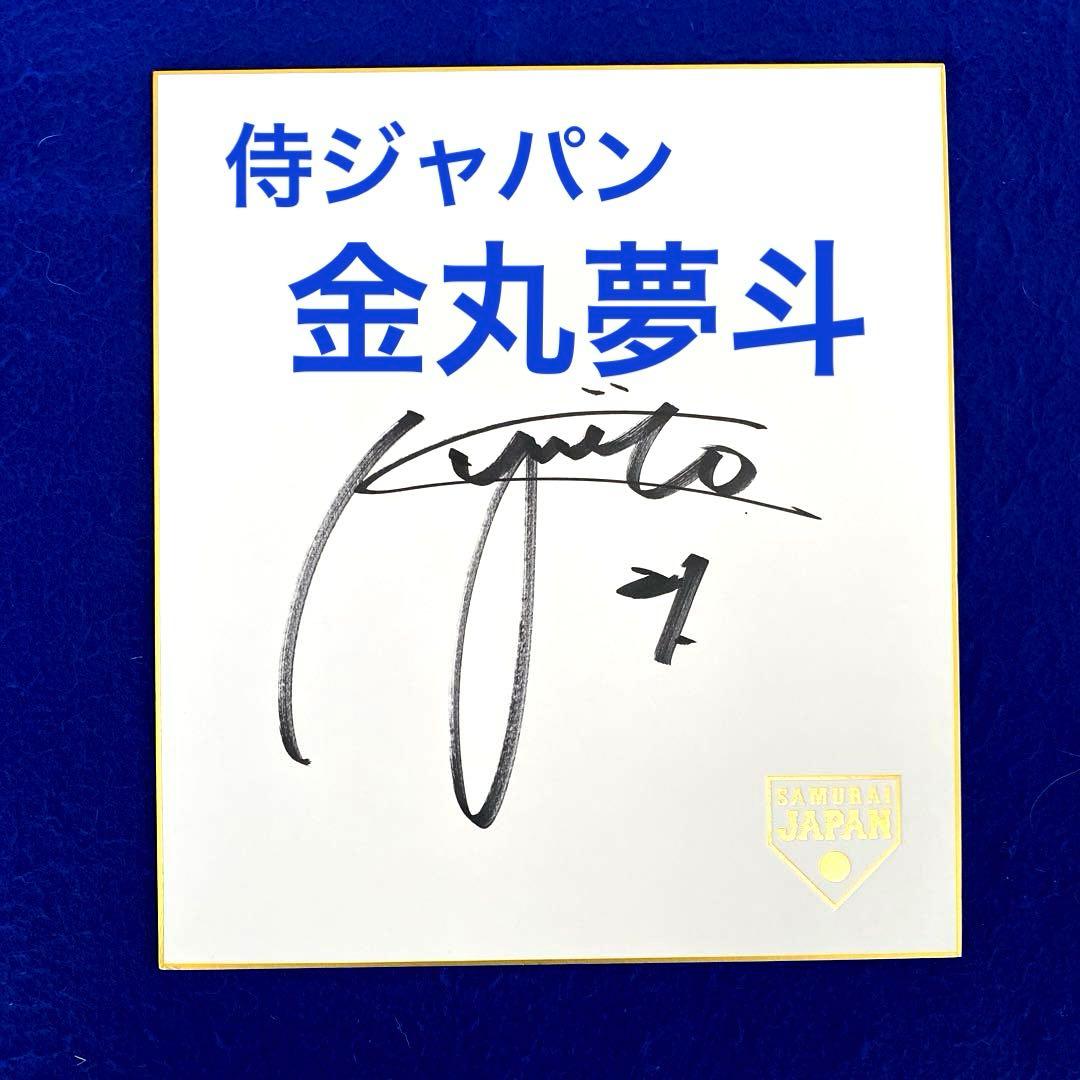 侍ジャパン
金丸夢斗
SAMURAI
JAPAN